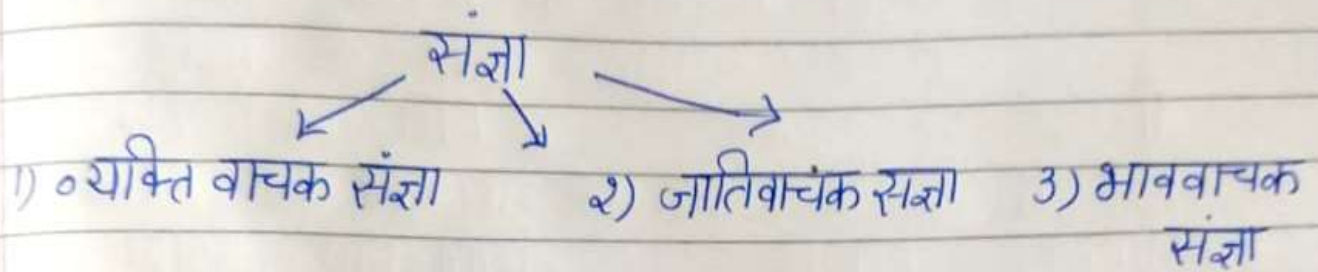 संज्ञा
1) व्यक्ति वाचक संज्ञा २) जातिवाचंक सज्ञा 3) भाववाचक
संज्ञा